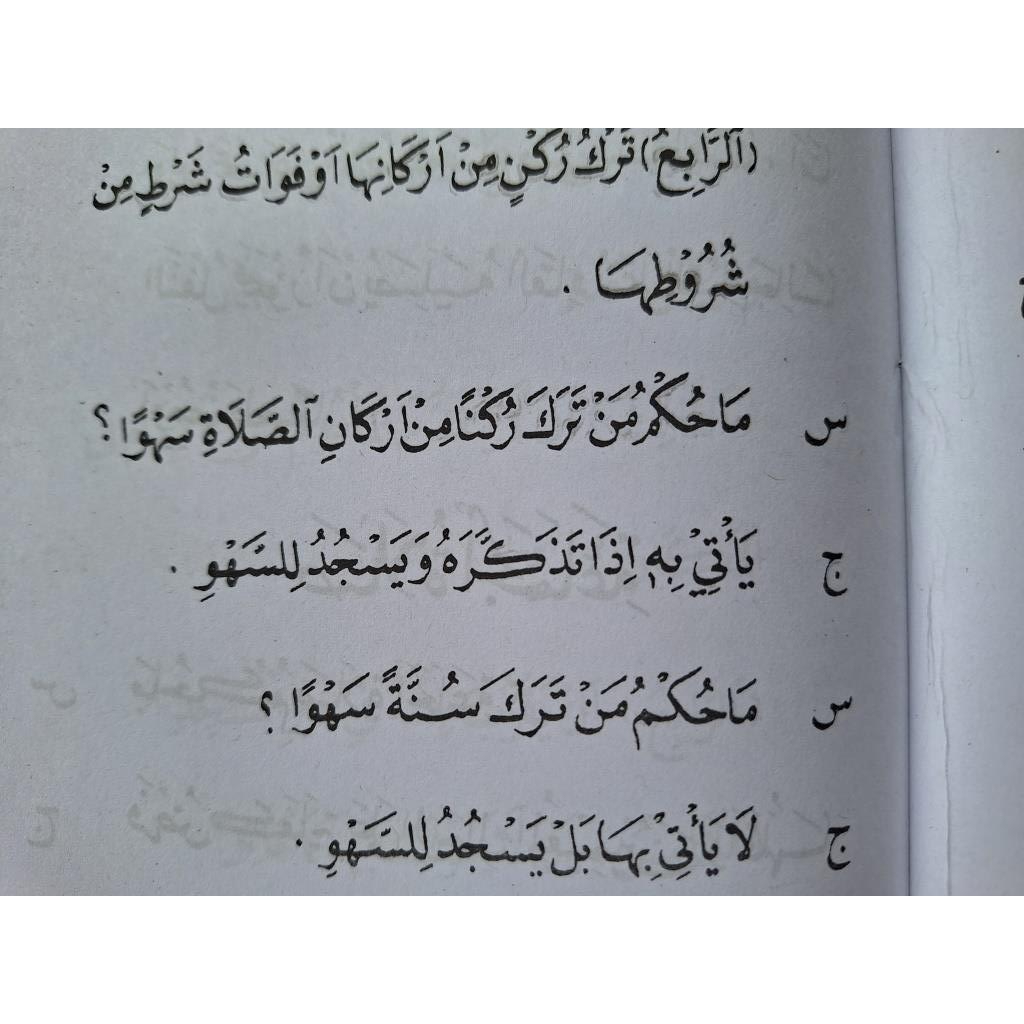 (اَلرَّابِعُ) تَرْكُ رُكْنٍ مِنْ اَرْكَانِهَا اَوْ فَوَاتُ شَرْطٍ مِنْ
شُرُوْطِهَا .
س مَا حُكْمُ مَنْ تَرَكَ رُكْنًا مِنْ اَرْكَانِ الصَّلَاةِ سَهْوًا ؟
ج يَأْتِيْ بِهِ اِذَا تَذَكَّرَهُ وَيَسْجُدُ لِلسَّهْوِ .
س مَا حُكْمُ مَنْ تَرَكَ سُنَّةً سَهْوًا ؟
ج لَا يَأْتِيْ بِهَا بَلْ يَسْجُدُ لِلسَّهْوِ .